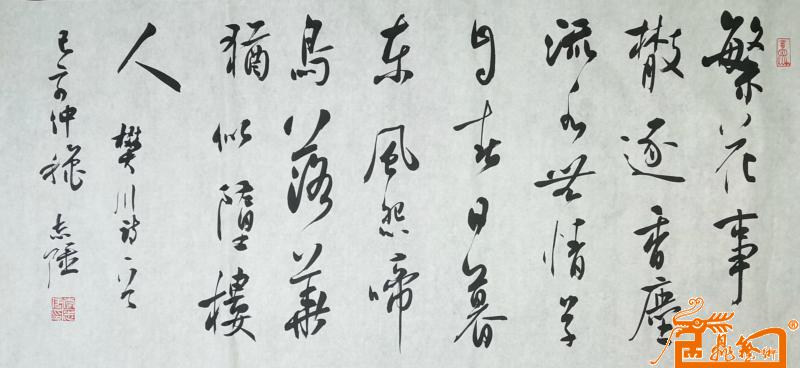 繁花事
散逐香塵
流水無情草
自春日暮
東風怨啼
鳥落華
猶似墮樓
人
樊川詩一首
己亥仲穐 志